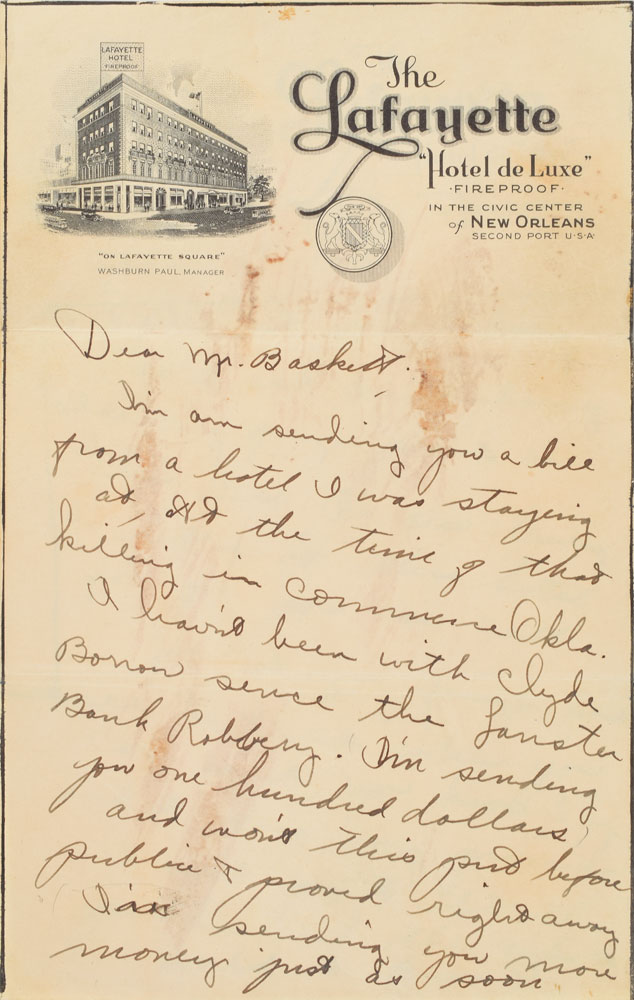 LAFAYETTE
HOTEL
FIREPROOF
The
Lafayette
"Hotel de Luxe"
·FIREPROOF·
IN THE CIVIC CENTER
of NEW ORLEANS
SECOND PORT U·S·A·
"ON LAFAYETTE SQUARE"
WASHBURN PAUL, MANAGER
Dear Mr. Baskett.
I'm am sending you a bill
from a hotel I was staying
at, at the time of that
killing in commerse Okla.
I havn't been with Clyde
Borrow sence the Lanster
Bank Robbery. I'm sending
you one hundred dollars
and won't this put before
public & proved right away
I am sending you more
money just as soon